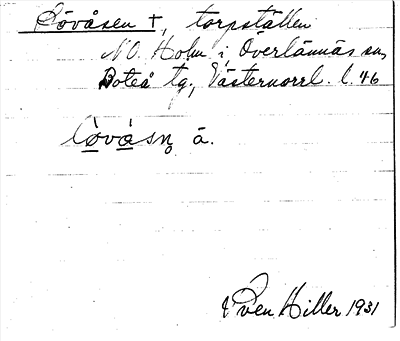 Lövåsen †, torpställen
NO. Holm i Överlännäs sn,
Boteå tg., Västernorrl. l. 46
lòvàsn̥ å.
Sven Hiller 1931